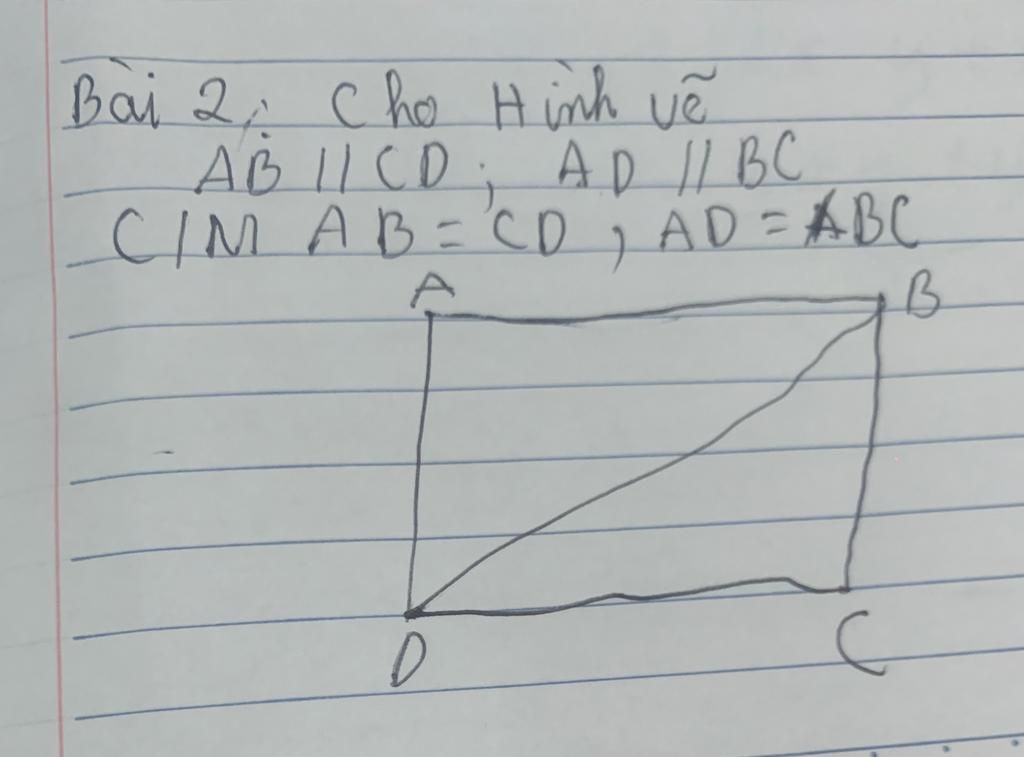 Bài 2: Cho Hình vẽ
AB // CD; AD // BC
C/M AB = CD, AD = BC
A
B
D
C